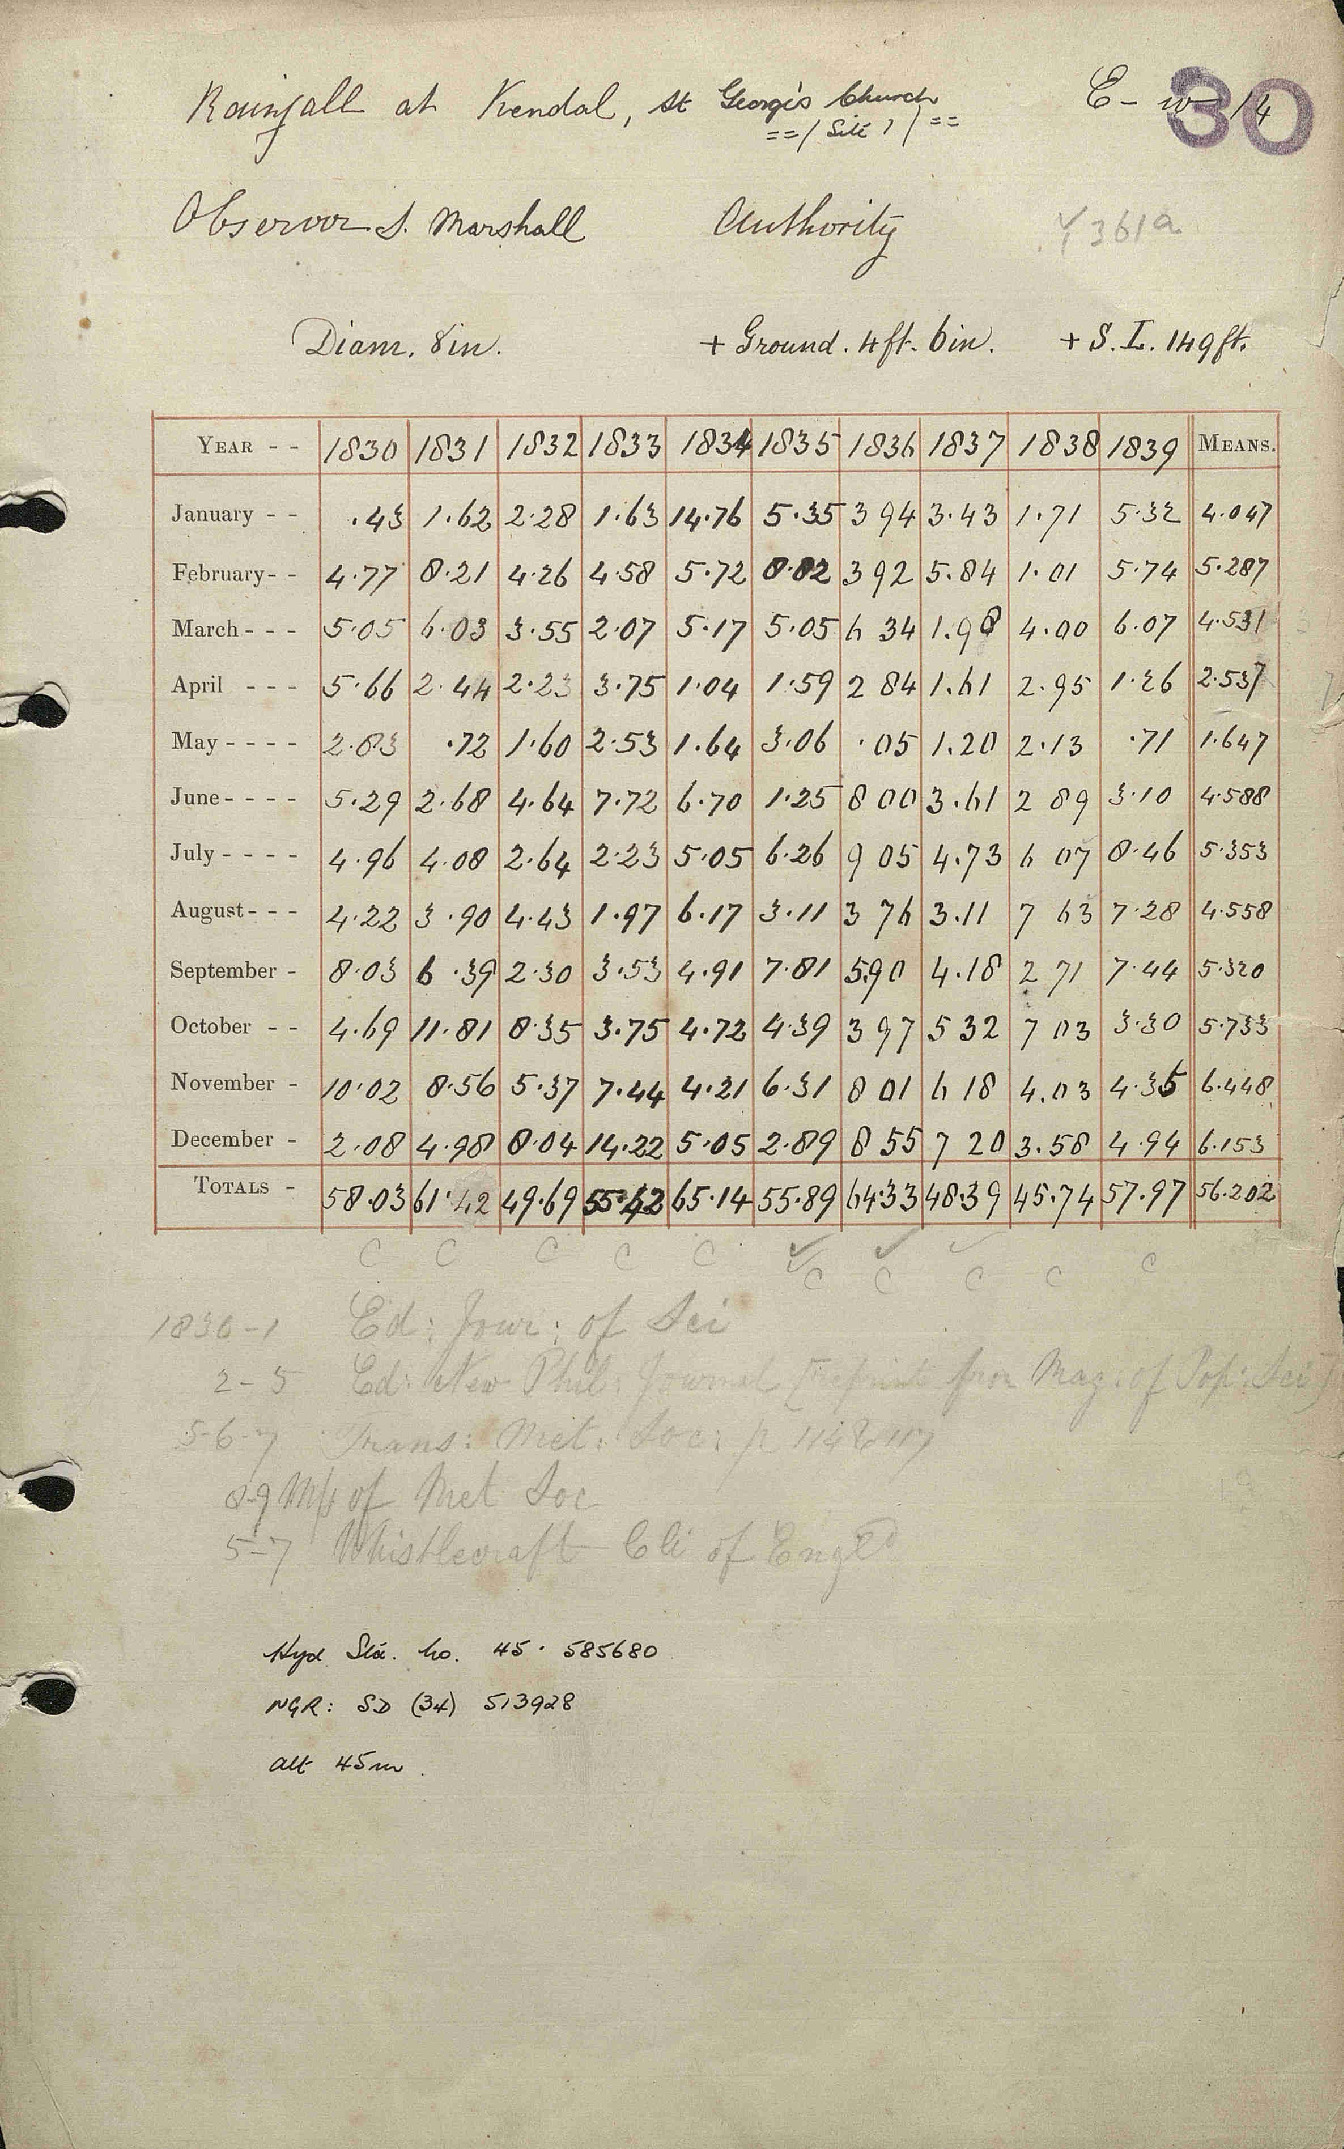 30
Rainfall at Kendal, St George's Church E-w /4
==/ Site 1 /==
Observer S. Marshall Authority Y 361a
Diam. 8in. + Ground. 4ft. 6in. + S.L. 149ft.
YEAR - - 1830 1831 1832 1833 1834 1835 1836 1837 1838 1839 MEANS.
January - - .43 1.62 2.28 1.63 14.76 5.35 3 94 3.43 1.71 5.32 4.047
February - - 4.77 8.21 4.26 4.58 5.72 8.82 3 92 5.84 1.01 5.74 5.287
March - - - 5.05 6.03 3.55 2.07 5.17 5.05 6 34 1.98 4.00 6.07 4.531
April - - - 5.66 2.44 2.23 3.75 1.04 1.59 2 84 1.61 2.95 1.26 2.537
May - - - - 2.83 .72 1.60 2.53 1.64 3.06 .05 1.20 2.13 .71 1.647
June - - - - 5.29 2.68 4.64 7.72 6.70 1.25 8 00 3.61 2 89 3.10 4.588
July - - - - 4.96 4.08 2.64 2.23 5.05 6.26 9 05 4.73 6 07 8.46 5.353
August - - - 4.22 3.90 4.43 1.97 6.17 3.11 3 76 3.11 7 63 7.28 4.558
September - 8.03 6.39 2.30 3.53 4.91 7.81 5.90 4.18 2 71 7.44 5.320
October - - 4.69 11.81 8.35 3.75 4.72 4.39 3 97 5 32 7 03 3.30 5.733
November - 10.02 8.56 5.37 7.44 4.21 6.31 8 01 6 18 4.03 4.35 6.448
December - 2.08 4.98 8.04 14.22 5.05 2.89 8 55 7 20 3.58 4.94 6.153
TOTALS - 58.03 61.42 49.69 55.42 65.14 55.89 64.33 48.39 45.74 57.97 56.202
C C C C C C C C C C
1830-1 Ed: Jour: of Sci
2-5 Ed: New Phil: Journal [reprint from Mag: of Pop: Sci]
5-6-7 Trans: Met: Soc: p 114 & 117
8-9 M/s of Met Soc
5-7 Whistlecraft Cli of Engld
Hyd Sta. No. 45. 585680
NGR: SD (34) 513928
alt 45m.